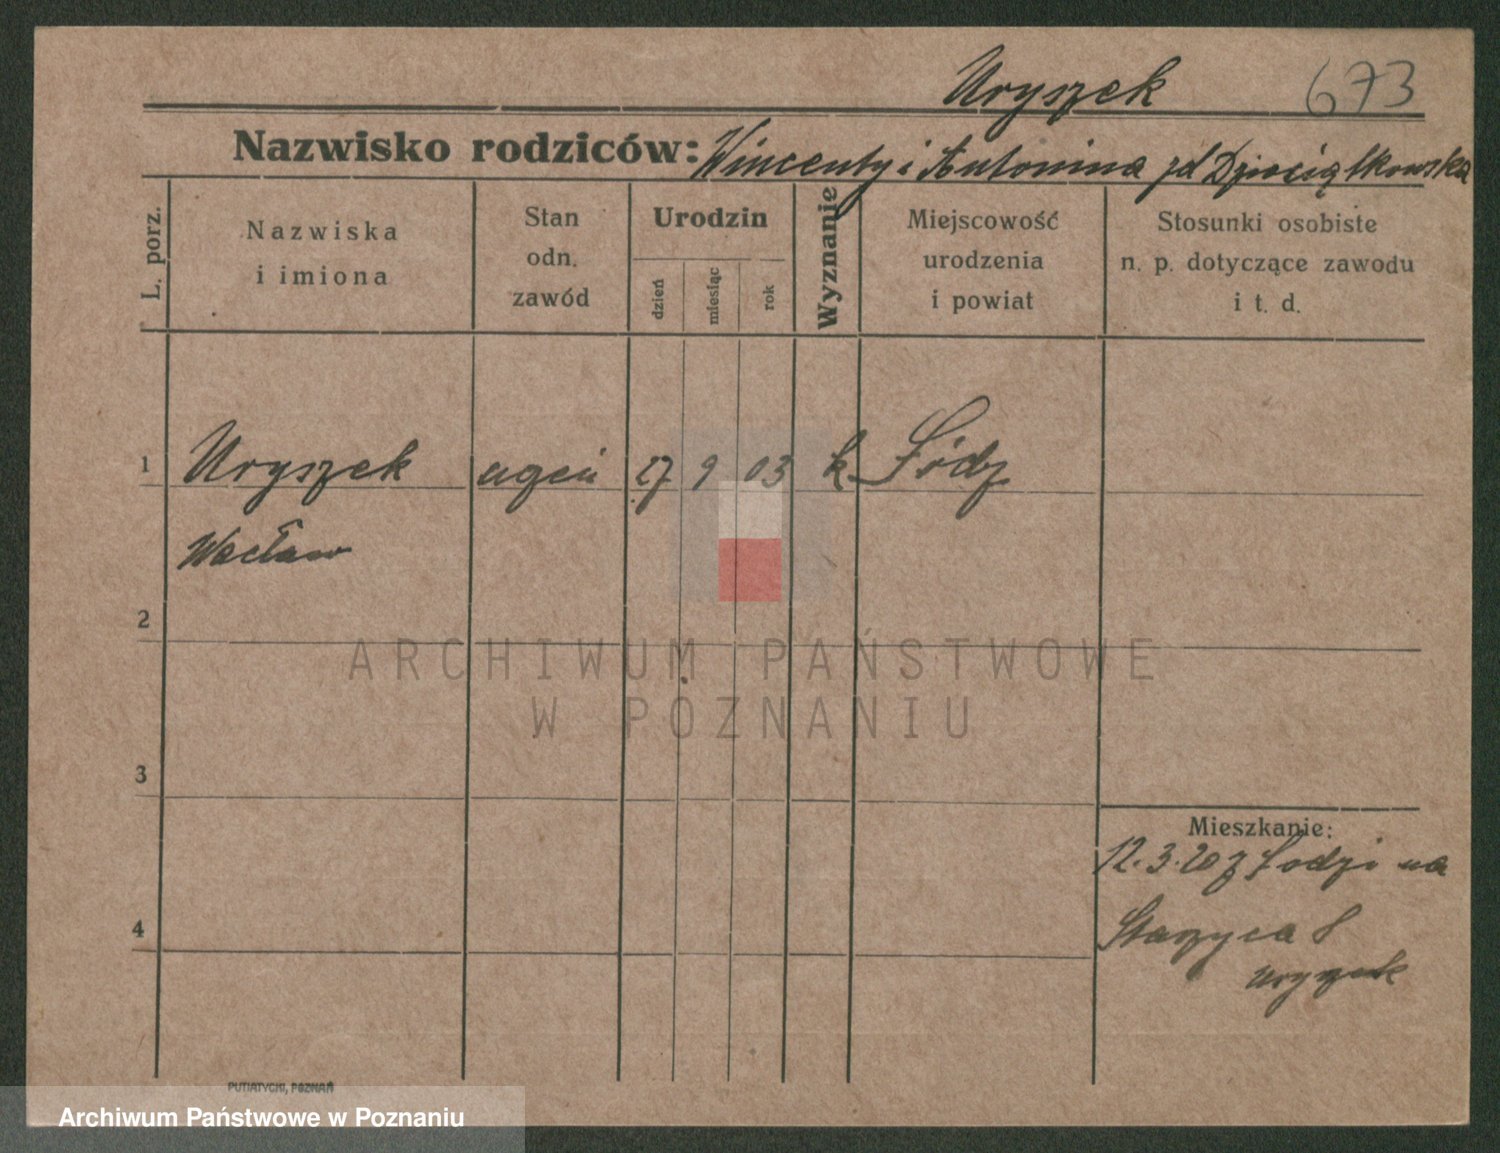 Uryszek 673
Nazwisko rodziców: Wincenty i Antonina zd Dzieciątkowska
L. porz.
Nazwiska
i imiona
Stan
odn.
zawód
Urodzin
dzień
miesiąc
rok
Wyznanie
Miejscowość
urodzenia
i powiat
Stosunki osobiste
n. p. dotyczące zawodu
i t. d.
1 Uryszek uczeń 17 9 03 k Łódz
Wacław
2
3
4
Mieszkanie:
12.3.20 z Łodzi na
8
Uryszek
PUTIATYCKI, POZNAŃ
ARCHIWUM PAŃSTWOWE
W POZNANIU
Archiwum Państwowe w Poznaniu